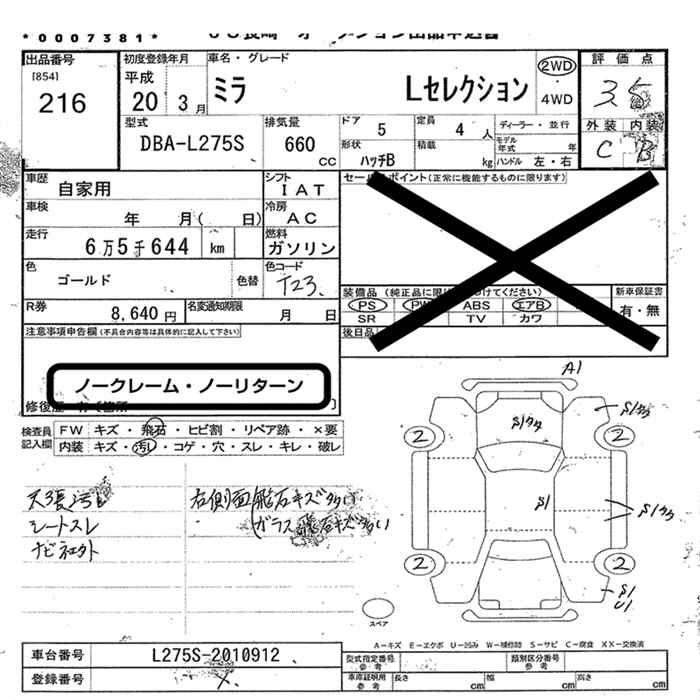 *0007381*
出品番号
[854]
216
初度登録年月
平成
20 3月
車名・グレード
ミラ Lセレクション
2WD
・
4WD
評価点
3.5
外装 内装
C B
型式
DBA-L275S
排気量
660
cc
ドア
5
定員
4 人
ディーラー・並行
形状
ハッチB
積載
kg
モデル
年式 年
ハンドル 左・右
車歴
自家用
シフト
IAT
車検
年 月( 日)
冷房
AC
走行
6万5千644 km
燃料
ガソリン
色
ゴールド
色替
色コード
T23
R券
8,640 円
名変通知期限
月 日
セールスポイント(正常に機能するものに限ります)
装備品
PS PW ABS エアB
SR TV カワ
新車保証書
有・無
後日品
注意事項申告欄(不具合内容等は具体的に記入して下さい)
ノークレーム・ノーリターン
修復歴
検査員
記入欄
FW キズ・飛石・ヒビ割・リペア跡・×要
内装 キズ・汚レ・コゲ・穴・スレ・キレ・破レ
天張汚レ
シートスレ
右側面飛石キズ多い
ガラス飛石キズ多い
A1
S1多
S1多
2 2
S1
S1多
2 2
S1
U1
スペア
A-キズ E-エクボ U-凹み W-補修跡 S-サビ C-腐食 XX-交換済
車台番号
L275S-2010912
登録番号
型式指定番号
参考
類別区分番号
参考
車庫証明用
参考
長さ cm
幅 cm
高さ cm